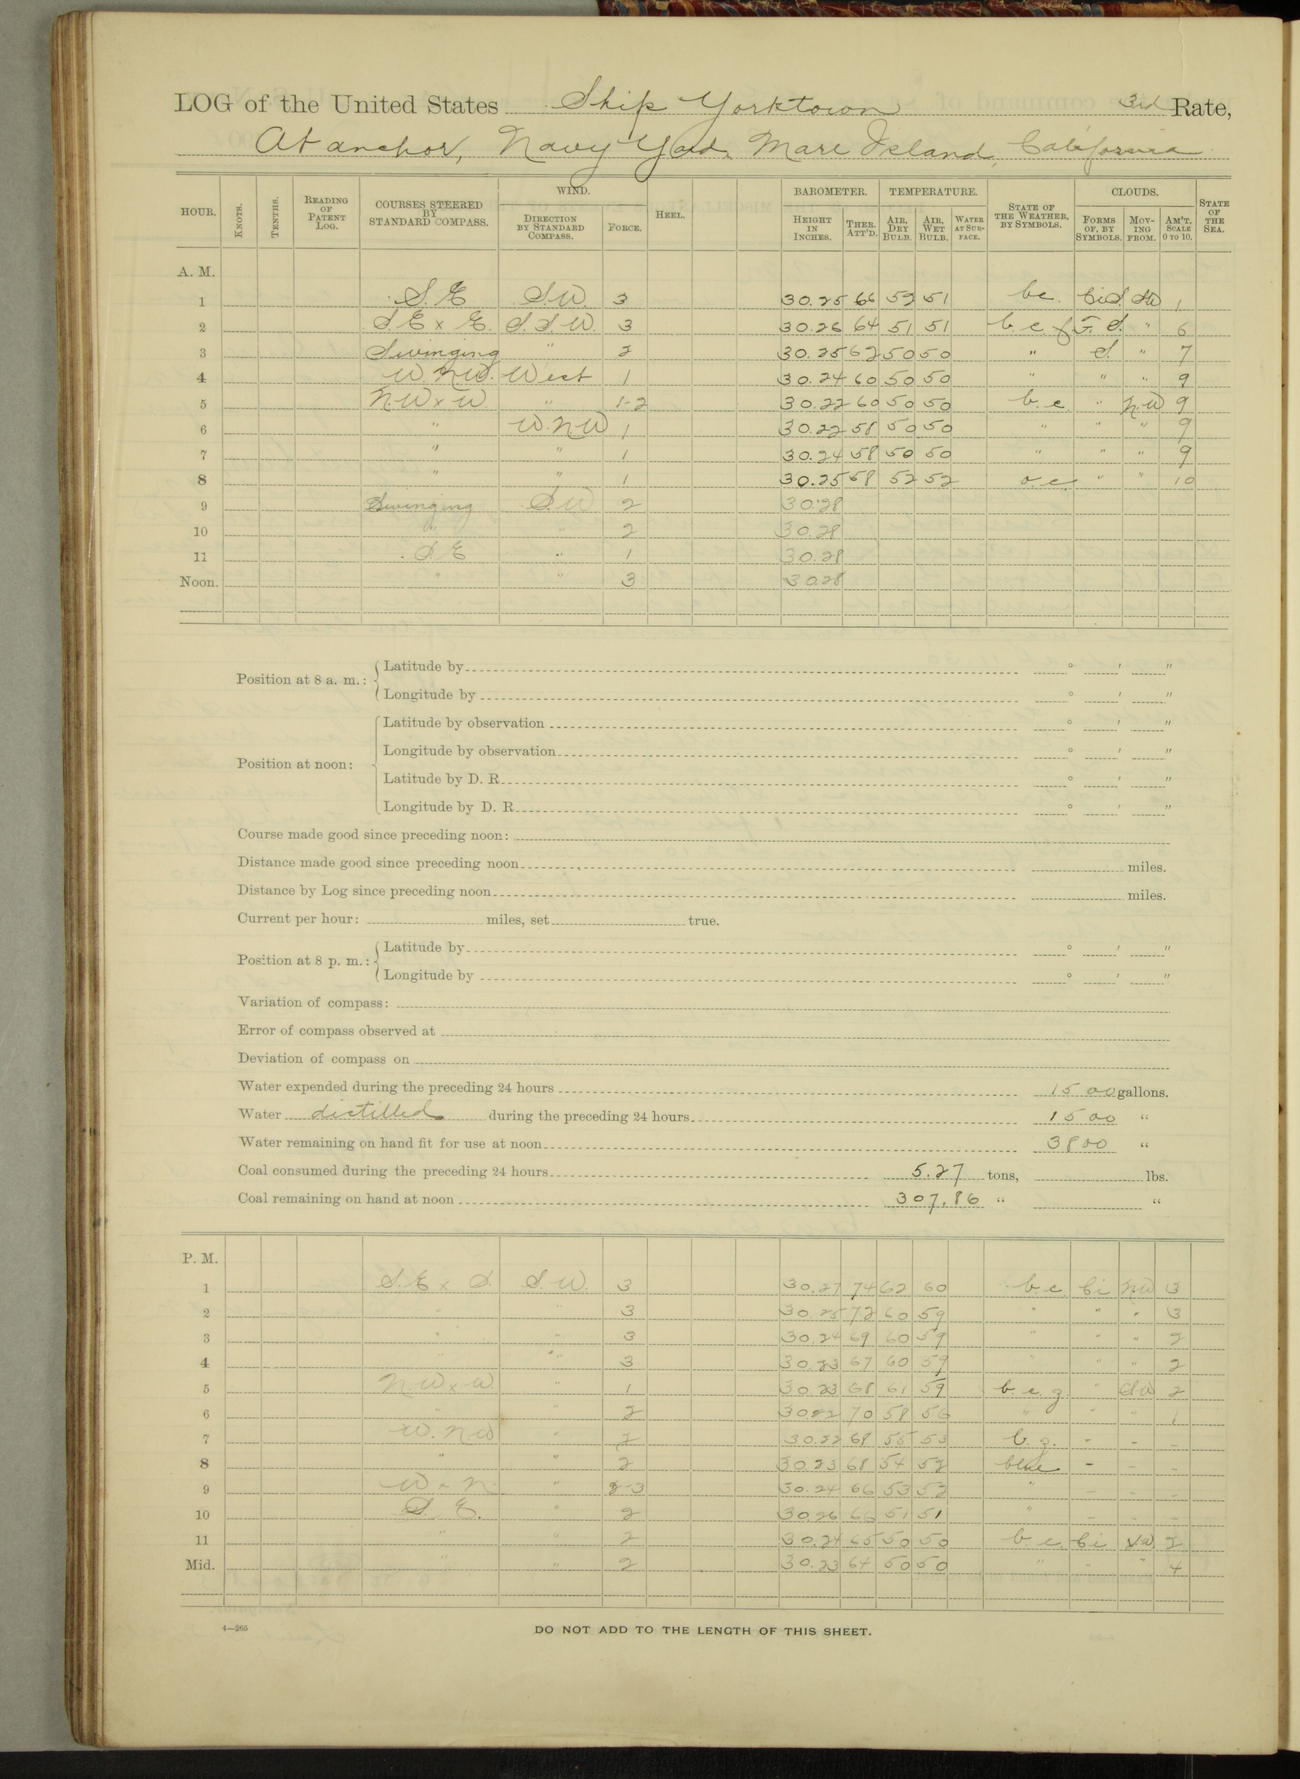 LOG of the United States Ship Yorktown 3rd Rate,
At anchor, Navy Yard, Mare Island, California
HOUR. KNOTS. TENTHS. READING OF PATENT LOG. COURSES STEERED BY STANDARD COMPASS. WIND. DIRECTION BY STANDARD COMPASS. FORCE. HEEL. BAROMETER. HEIGHT IN INCHES. THER. ATT'D. TEMPERATURE. AIR, DRY BULB. AIR, WET BULB. WATER AT SURFACE. STATE OF THE WEATHER, BY SYMBOLS. CLOUDS. FORMS OF, BY SYMBOLS. MOVING FROM. AM'T. SCALE 0 TO 10. STATE OF THE SEA.
A. M.
1 S.E S.W. 3 30.25 66 52 51 bc. Ci.S. SW 1
2 SE x E. S.S.W. 3 30.26 64 51 51 b.c.f S. " 6
3 Swinging " 2 30.25 62 50 50 " S. " 7
4 W.N.W. West 1 30.24 60 50 50 " " " 9
5 N.W x W " 1-2 30.22 60 50 50 b.c. " N.W 9
6 " W.N.W 1 30.22 58 50 50 " " " 9
7 " " 1 30.24 58 50 50 " " " 9
8 " " 1 30.25 58 52 52 o.c. " " 10
9 Swinging S.W 2 30.28
10 " " 2 30.28
11 S.E " 1 30.28
Noon. " " 3 30.28
Position at 8 a. m.: Latitude by ° ' "
Longitude by ° ' "
Position at noon: Latitude by observation ° ' "
Longitude by observation ° ' "
Latitude by D. R. ° ' "
Longitude by D. R. ° ' "
Course made good since preceding noon:
Distance made good since preceding noon miles.
Distance by Log since preceding noon miles.
Current per hour: miles, set true.
Position at 8 p. m.: Latitude by ° ' "
Longitude by ° ' "
Variation of compass:
Error of compass observed at
Deviation of compass on
Water expended during the preceding 24 hours 1500 gallons.
Water distilled during the preceding 24 hours 1500 "
Water remaining on hand fit for use at noon 3800 "
Coal consumed during the preceding 24 hours 5.27 tons, lbs.
Coal remaining on hand at noon 307.86 " "
P. M.
1 S.E x S. S.W. 3 30.27 74 62 60 b.c. Ci NW 3
2 " " 3 30.25 72 60 59 " " " 3
3 " " 3 30.24 69 60 59 " " " 2
4 " " 3 30.23 67 60 59 " " " 2
5 N.W x W. " 1 30.23 68 61 59 b.c.g. " SW 2
6 " " 2 30.22 70 58 56 " " " 1
7 W. NW " 2 30.22 68 55 53 b.g. - - -
8 " " 2 30.23 68 54 52 blue - - -
9 W x N " 2-3 30.24 66 53 52 " - - -
10 S. E. " 2 30.26 66 51 51 " - - -
11 " " 2 30.24 65 50 50 b.c. Ci 2
Mid. " " 2 30.23 64 50 50 " " " 4
4—265
DO NOT ADD TO THE LENGTH OF THIS SHEET.